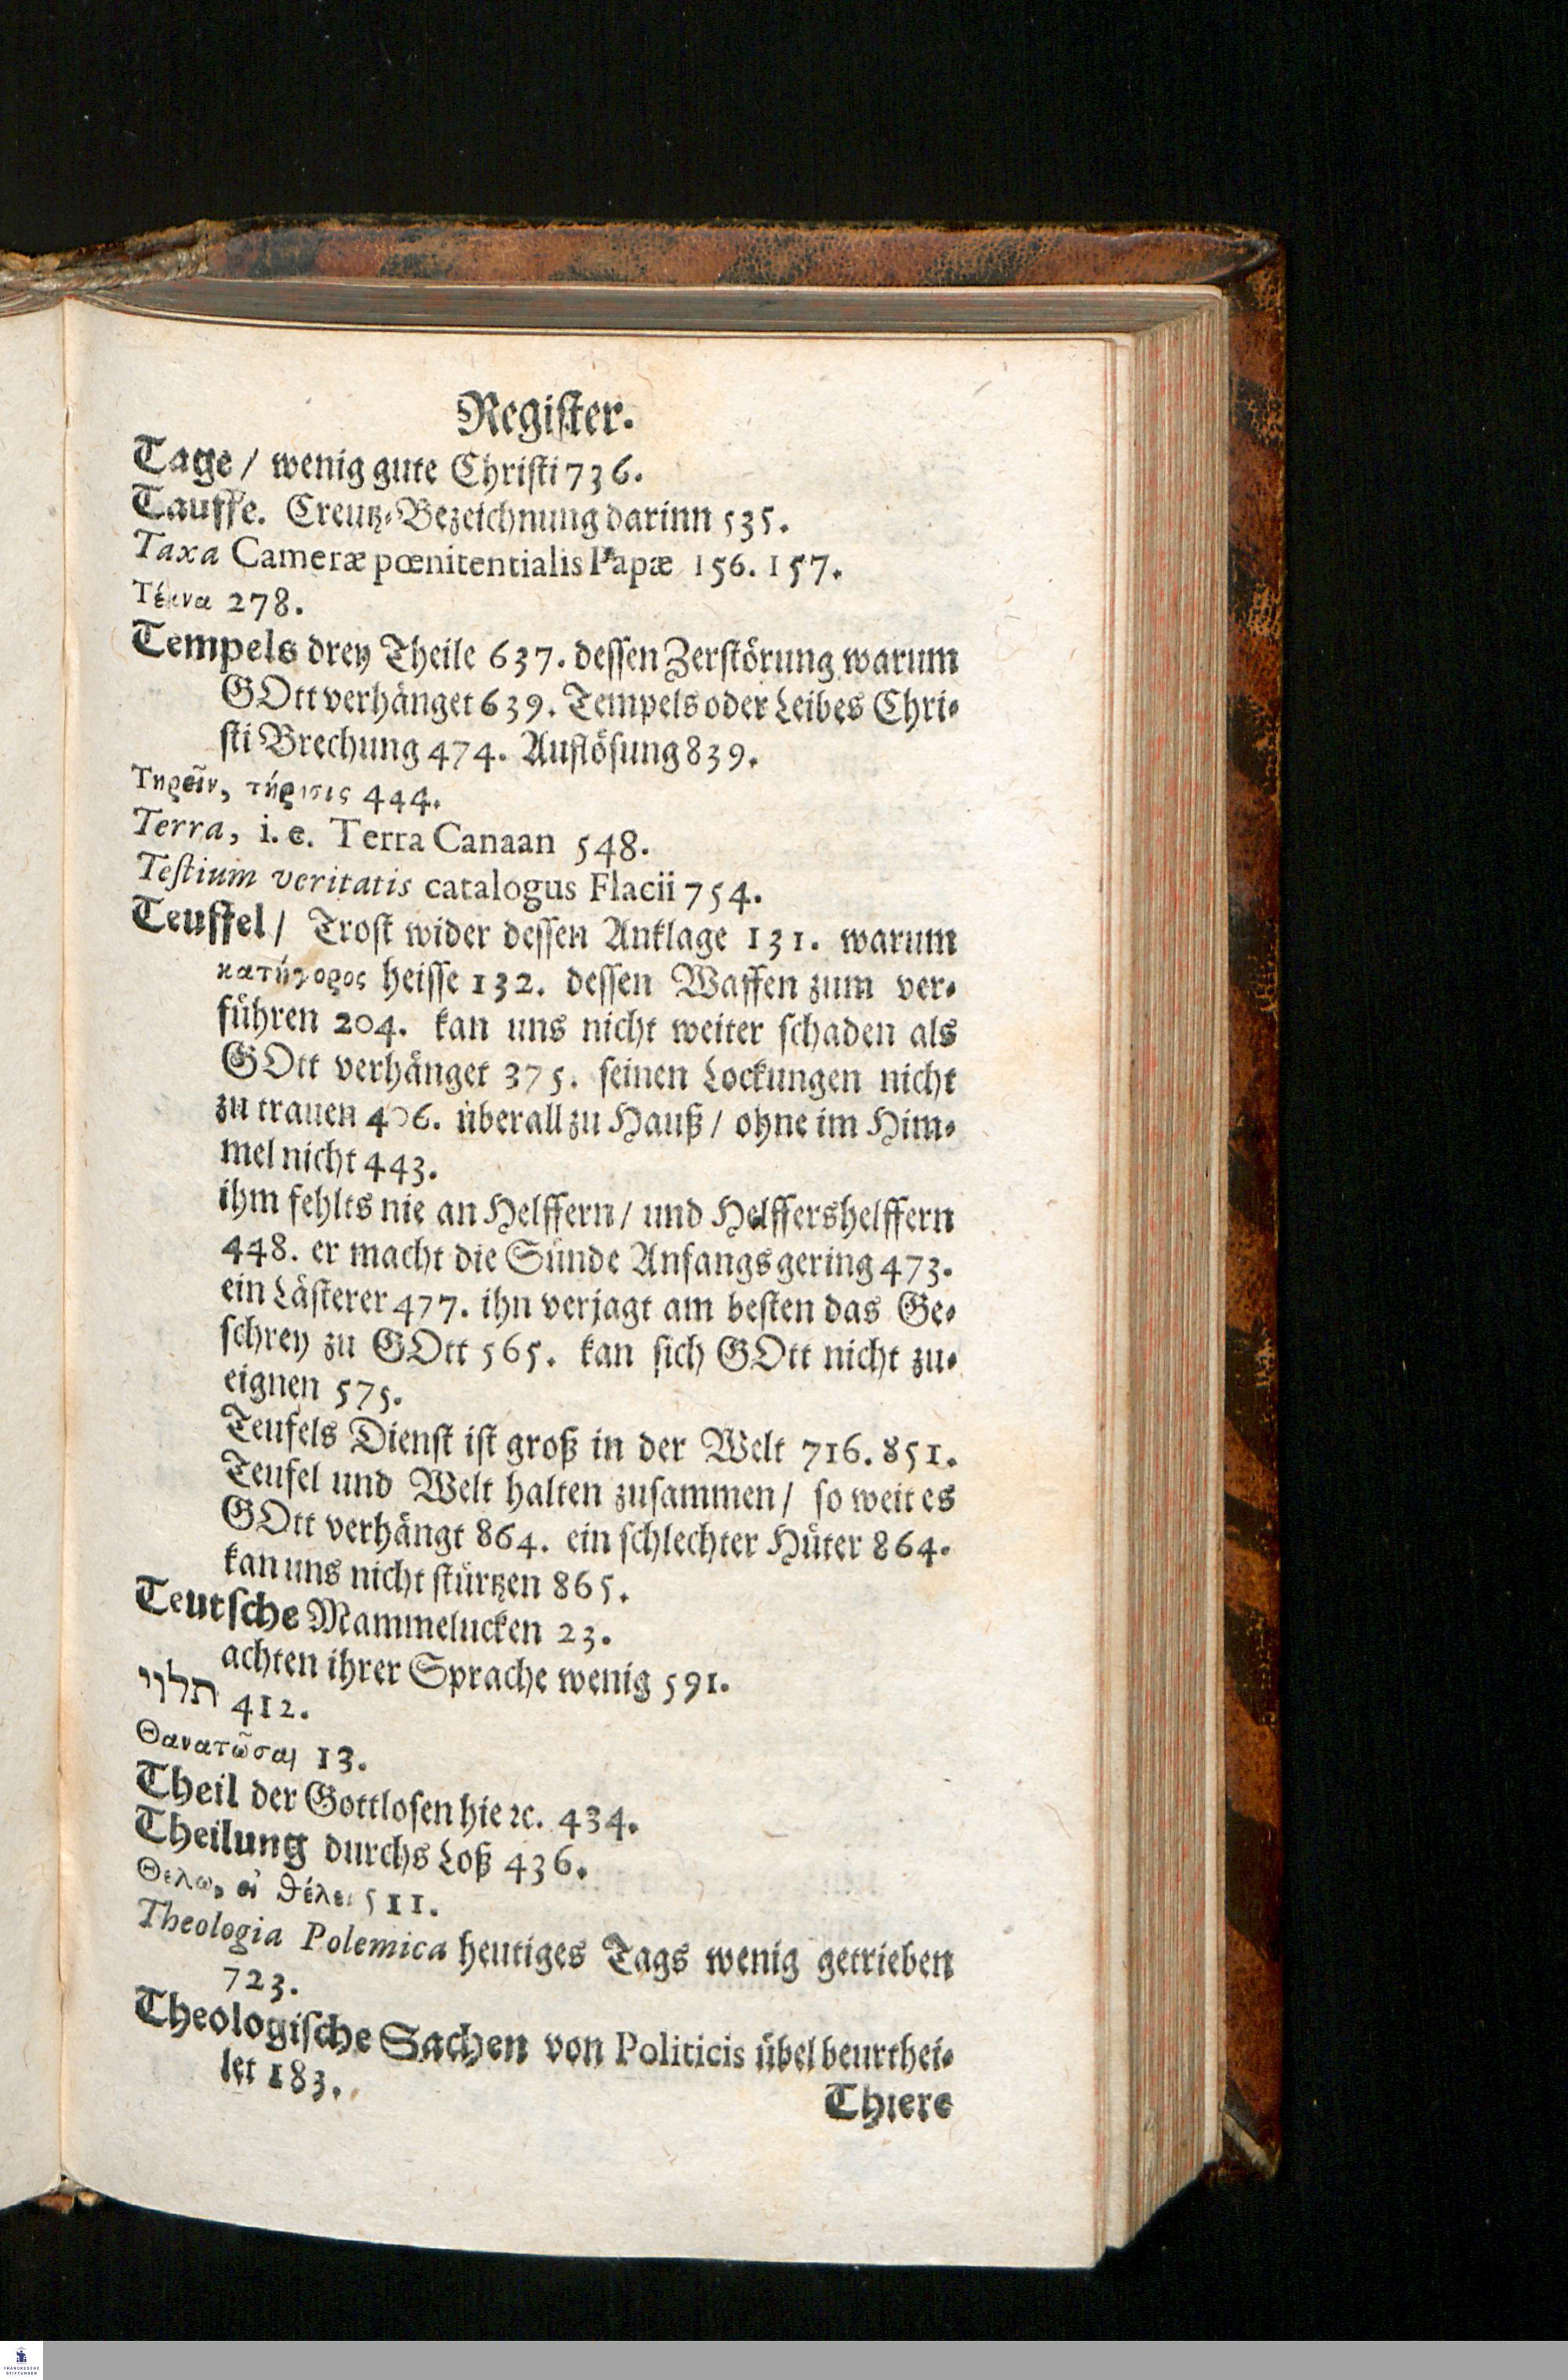 Register.
Tage / wenig gute Christi 736.
Tauffe. Creutz-Bezeichnung darinn 535.
Taxa Cameræ pœnitentialis Papæ 156. 157.
Τέκνα 278.
Tempels drey Theile 637. dessen Zerstörung warum
GOtt verhänget 639. Tempels oder Leibes Chri-
sti Brechung 474. Auflösung 839.
Τηρεῖν, τήρησις 444.
Terra, i. e. Terra Canaan 548.
Testium veritatis catalogus Flacii 754.
Teuffel / Trost wider dessen Anklage 131. warum
κατήγορος heisse 132. dessen Waffen zum ver-
führen 204. kan uns nicht weiter schaden als
GOtt verhänget 375. seinen Lockungen nicht
zu trauen 406. überall zu Hauß / ohne im Him-
mel nicht 443.
ihm fehlts nie an Helffern / und Helffershelffern
448. er macht die Sünde Anfangs gering 473.
ein Lästerer 477. ihn verjagt am besten das Ge-
schrey zu GOtt 565. kan sich GOtt nicht zu-
eignen 575.
Teufels Dienst ist groß in der Welt 716. 851.
Teufel und Welt halten zusammen / so weit es
GOtt verhängt 864. ein schlechter Hüter 864.
kan uns nicht stürtzen 865.
Teutsche Mammelucken 23.
achten ihrer Sprache wenig 591.
תלוי 412.
Θανατῶσαι 13.
Theil der Gottlosen hie ꝛc. 434.
Theilung durchs Loß 436.
Θελω, εἰ θέλει 511.
Theologia Polemica heutiges Tags wenig getrieben
723.
Theologische Sachen von Politicis übel beurthei-
let 183.
Thiere
FRANCKESCHE
STIFTUNGEN